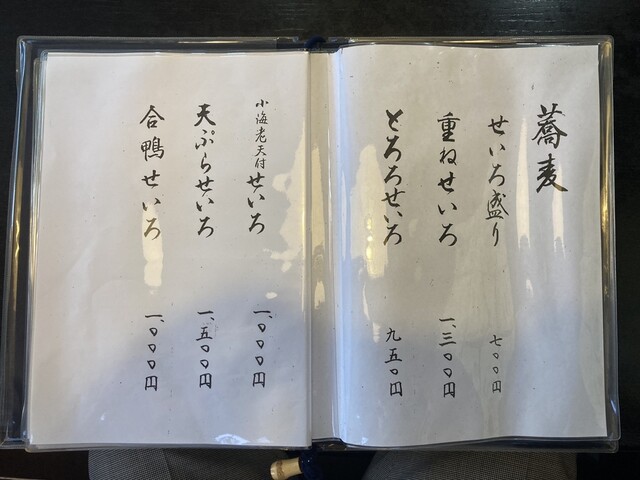 蕎麦
せいろ盛り 七〇〇円
重ねせいろ 一、三〇〇円
とろろせいろ 九五〇円
小海老天付せいろ 一、〇〇〇円
天ぷらせいろ 一、五〇〇円
合鴨せいろ 一、〇〇〇円